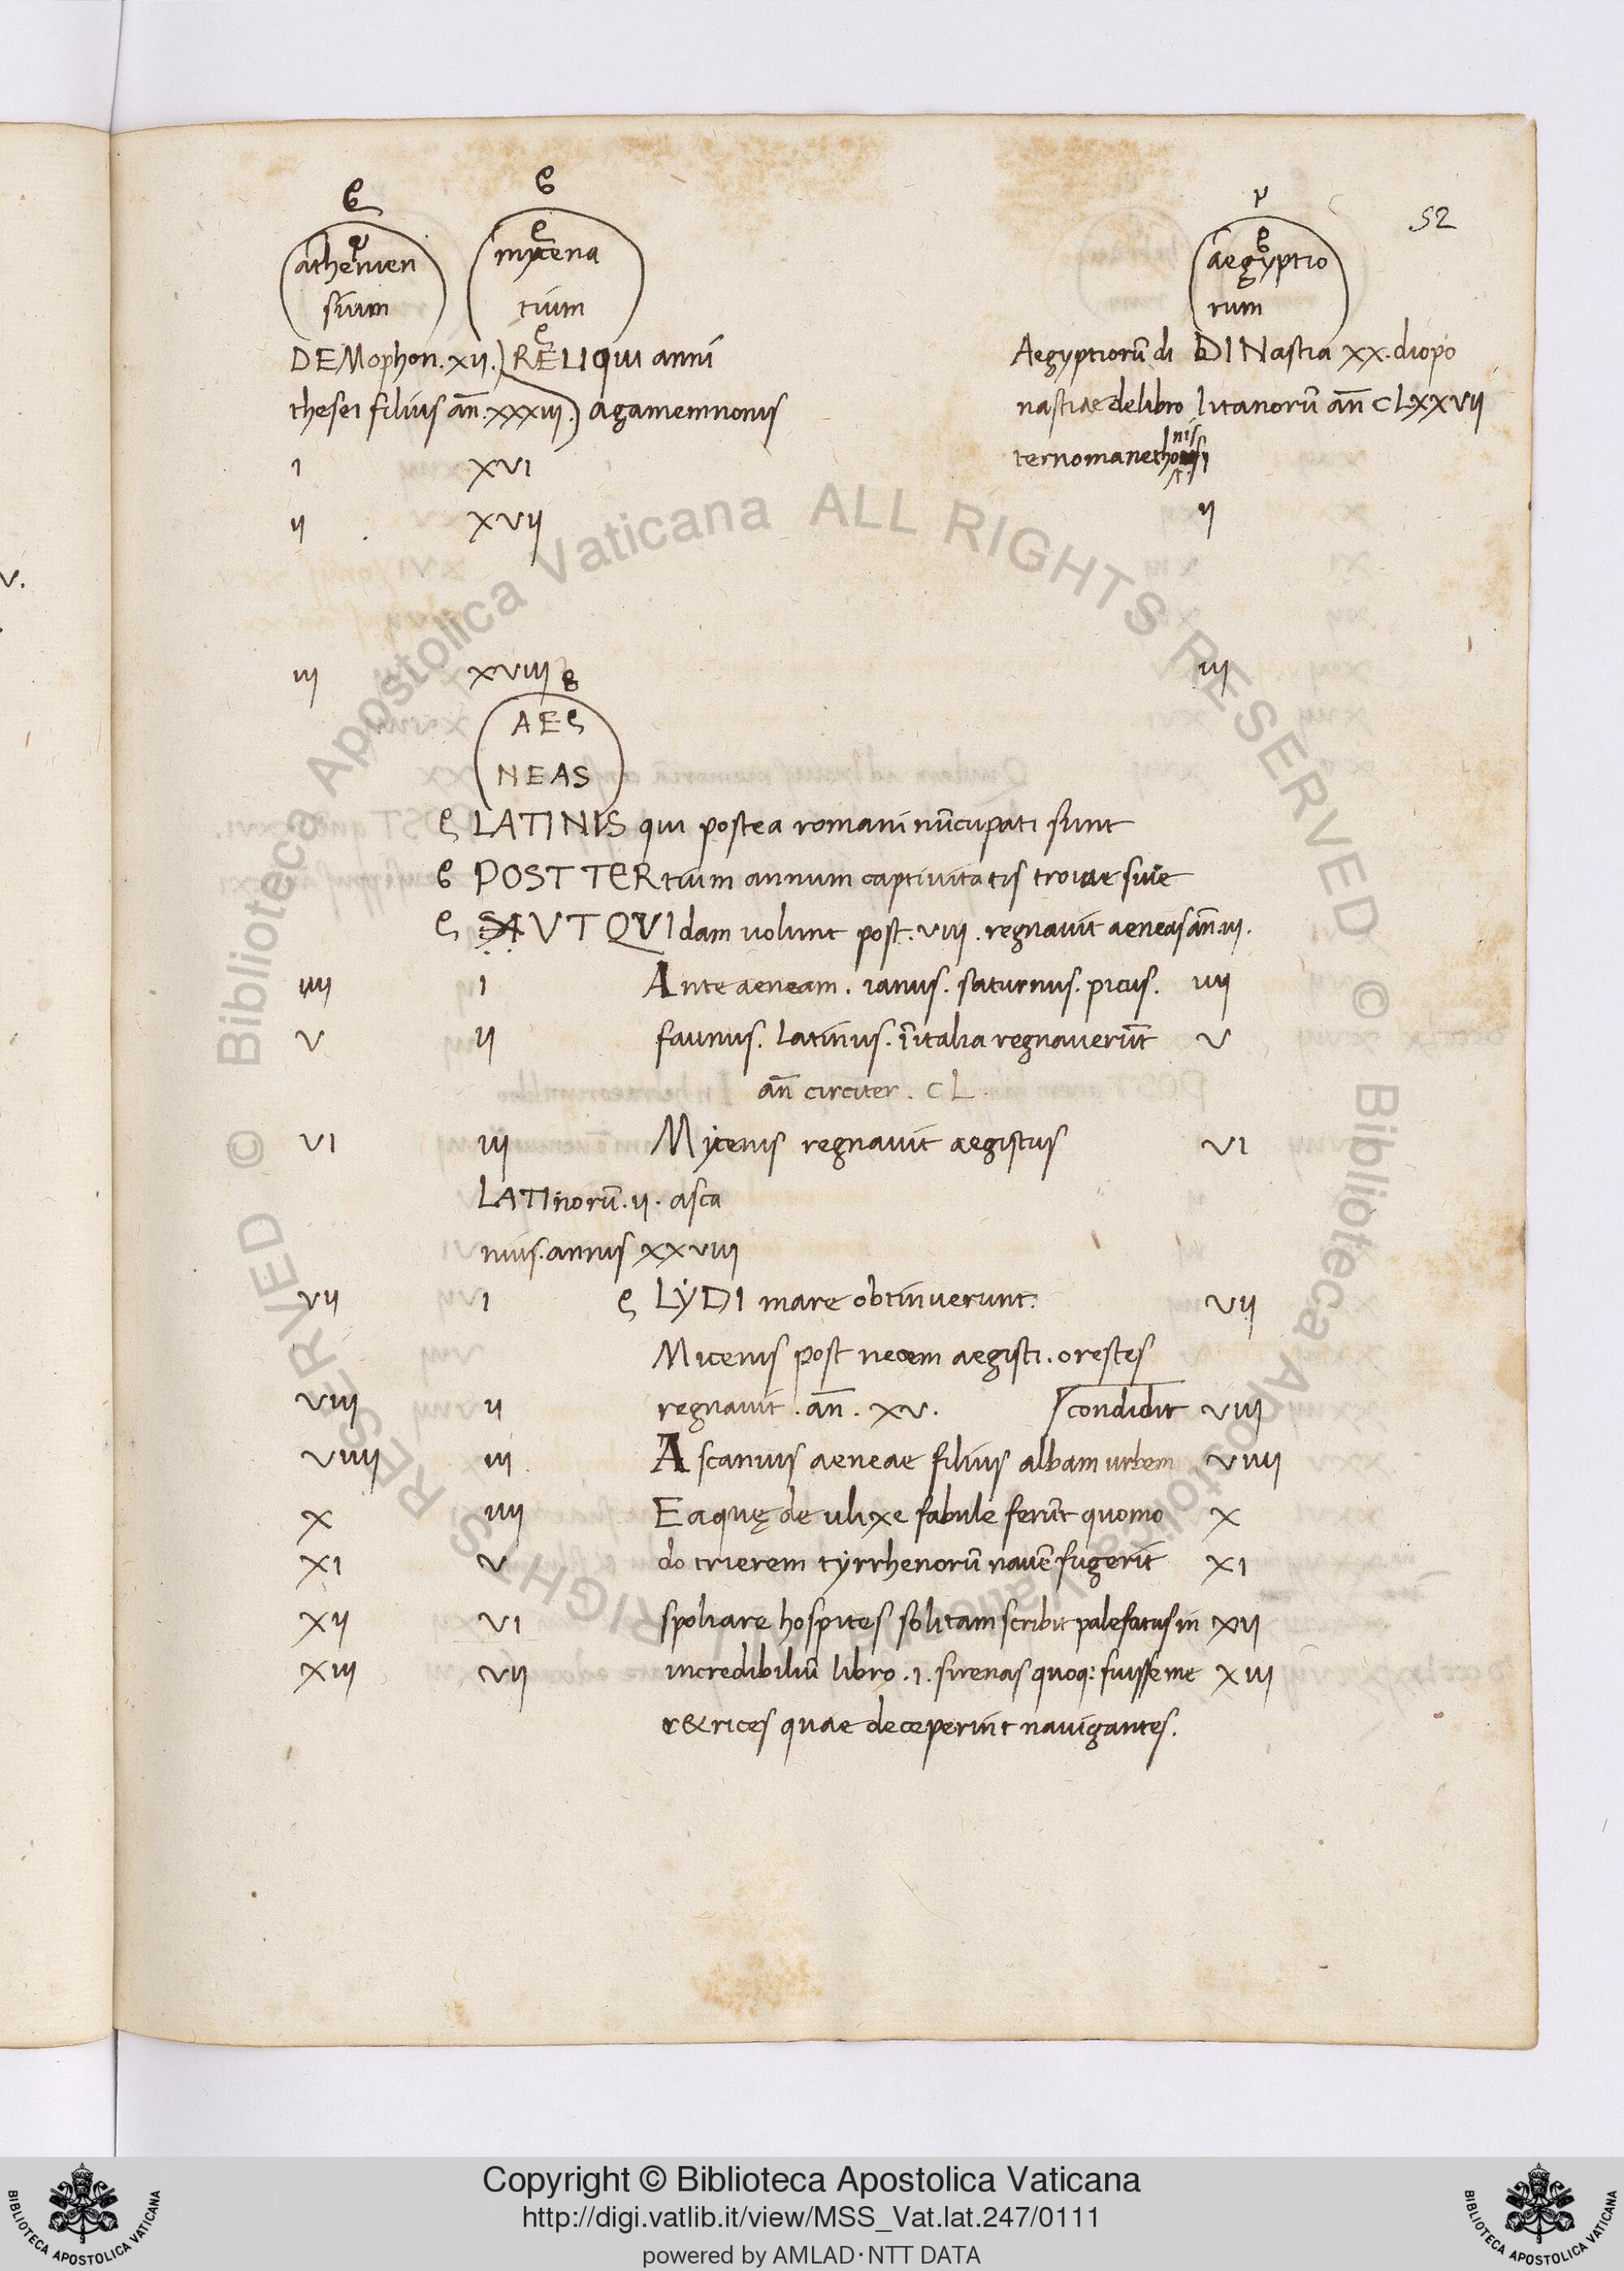 52
athenien
sium
mycena
tium
aegyptio
rum
DEMophon. xii.) RELIQui anni
Aegyptiorū di DINastia xx. diopo
thesei filius an̄. xxxiii.) agamemnonis
nastiae delibro litanorū an̄ CLxxvii
i xvi
ternomanetho
ii xvii ii
iii xviii iii
AE
NEAS
LATINIS qui postea romani nūcupati sunt
POST TERtium annum captivitatis troiae sive
UT QVIdam volunt post. viii. regnavit aeneas an̄. iii.
iiii i Ante aeneam. ianus. saturnus. picus. iiii
v ii faunus. latinus. ī italia regnaverūt v
an̄ circiter. CL.
vi iii Micenis regnavit aegistus vi
LATInorū. ii. asca
nius. annis xxviii
vii i LYDI mare obtinuerunt. vii
Micenis post necem aegisti. orestes
viii ii regnavit. an̄. xv. condidit viii
viiii iii Ascanius aeneae filius albam urbem viiii
x iiii Ea quę de ulixe fabule ferūt quomo x
xi v do trierem tyrrhenorū navē fugerit xi
xii vi spoliare hospites solitam scribit palefatus in xii
xiii vii incredibiliū libro. i. sirenas quoq: fuisse me xiii
r&rices quae deceperint navigantes.
Copyright © Biblioteca Apostolica Vaticana
http://digi.vatlib.it/view/MSS_Vat.lat.247/0111
powered by AMLAD·NTT DATA
Biblioteca Apostolica Vaticana ALL RIGHTS RESERVED ©
Biblioteca Apostolica Vaticana ALL RIGHTS RESERVED ©
BIBLIOTECA APOSTOLICA VATICANA
BIBLIOTECA APOSTOLICA VATICANA